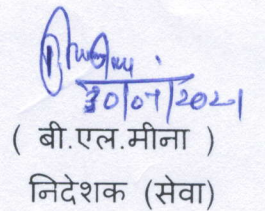 30/07/2021
( बी.एल.मीना )
निदेशक (सेवा)